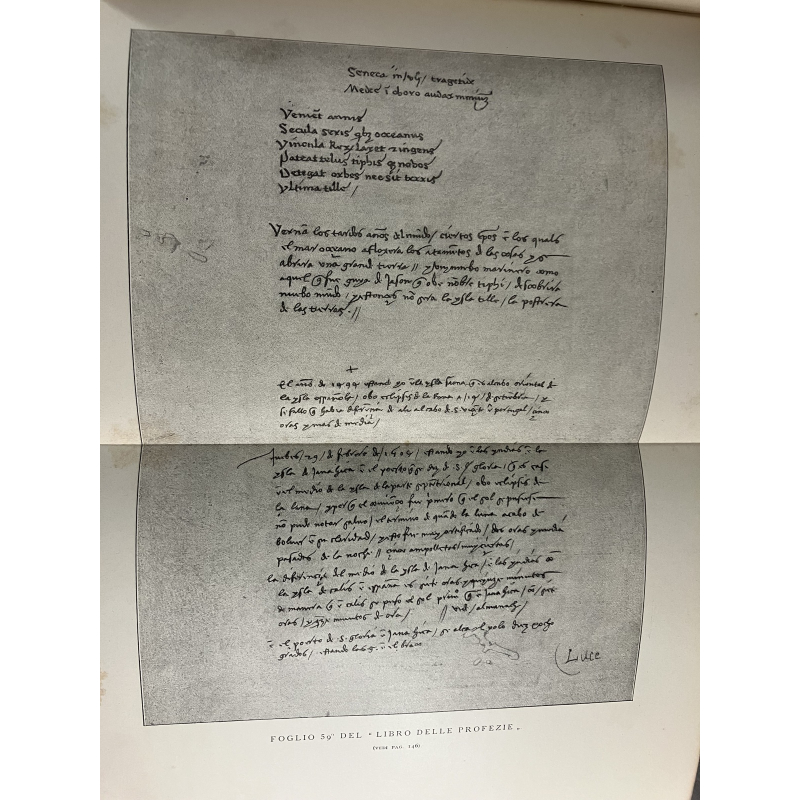 Seneca in / vij / tragetide
Medee ĩ choro audax nimiũ
Veniẽt annis
Secula seris qbz occeanus
Vincula Rez laxet z ingens
Pateat telus tiphis qz nobos
Detegat orbes nec sit terris
Vltima tille /
Vernã los tardos años del mũdo / ciertos tpõs ẽ los quals
el mar occeano afloxera los atamẽtos d las cosas y se
abrira vna grand tierra // y vn nuebo marinero como
aquel q̃ fue guya d Jason q̃ obe nõbre tiphi / descobrira
nuebo mũdo / y estonçes nõ sera la ysla tille / la postrera
de las tierras . //
+
El año de 1494 estand yo ẽ la ysla saona q̃ es al cabo oriental de
la ysla española / obo eclipsis de la luna a / 14 / de setẽbre / y
se fallo q̃ habia diferẽnçia de ali al cabo de .S. viçẽte ẽ portugal / çinco
oras y mas de media /
Juebes / 29 / de febrero de / 1504 / estando yo ẽ las yndias ẽ la
ysla de Janahica ẽ el poerto q̃ se diz de .S. gloria / q̃ es casi
ẽ el medio de la ysla de la parte septẽtrional / obo eclipsis de
la luna / y por q̃ el comienço fue primero q̃ el sol se pusiese
nõ pude notar salvo / el termino de quãdo la luna acabo de
bolver ẽ su claridad / y esto fue muy çertificado / dos oras y media
pasadas de la noche // çinco ampolletas muy çiertas /
la diferençia del medio de la ysla de Janahica / ẽ las yndias cõ
la ysla de calis ẽ españa es siete oras y quinze minutos
de manera q̃ ẽ calis se puso el sol primero q̃ ẽ Janahica / cõ / siete
oras / y quinze minutos de ora / // vide / almanach /
ẽ el poerto de .S. gloria ẽ Janahica / se alça el polo diez ocho
grados / estando las g. ẽ el braço
Luce
FOGLIO 59ᵛ DEL “ LIBRO DELLE PROFEZIE „
(VEDI PAG. 146)